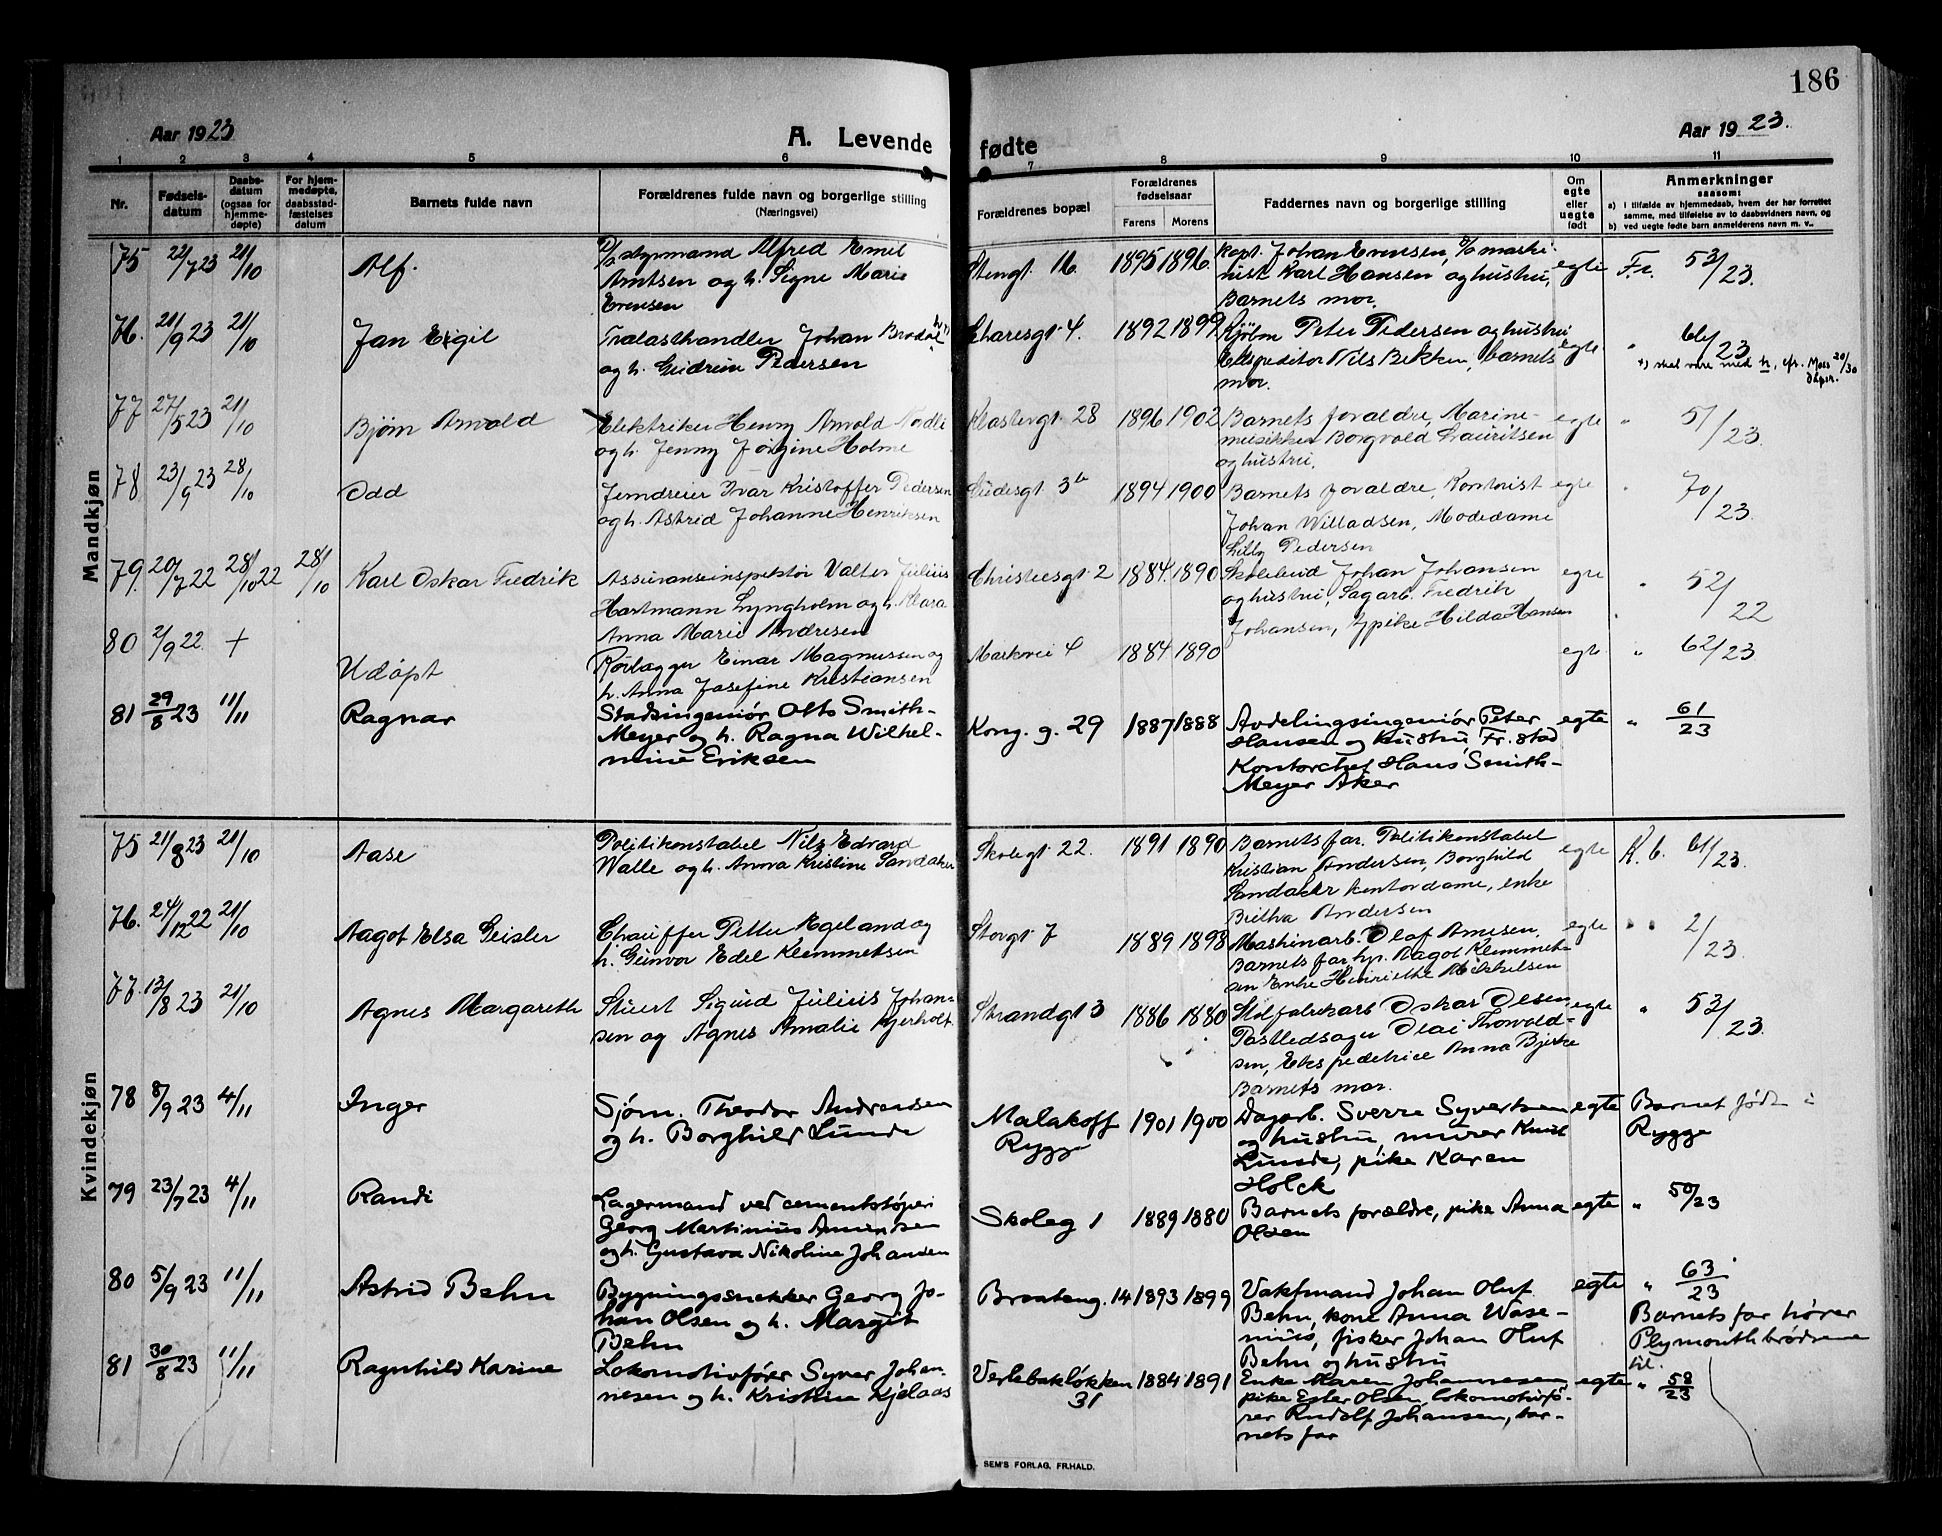 186
Aar 1923
A. Levende
fødte
Aar 1923.
1 2 3 4 5 6 7 8 9 10 11
Nr.
Fødsels-
datum
Daabs-
datum
(ogsaa for
hjemme-
døpte)
For hjem-
medøpte,
daabsstad-
fæstelses
datum
Barnets fulde navn
Forældrenes fulde navn og borgerlige stilling
(Næringsvei)
Forældrenes bopæl
Forældrenes
fødselsaar
Farens Morens
Faddernes navn og borgerlige stilling
Om
egte
eller
uegte
født
Anmerkninger
saasom:
a) I tilfælde av hjemmedaab, hvem der har forrettet
samme, med tilføielse av to daabsvidners navn, og
b) ved uegte fødte barn anmelderens navn m. v..
Mandkjøn
75 22/7 23 21/10 Alf.
P/s styrmand Alfred Emil
Arntsen og h. Signe Marie
Evensen
Stengt 16. 1895 1896
kapt. Johan Evensen, maski-
nist Karl Hansen og hustru,
Barnets mor.
egte Fr. 53/23.
76. 21/9 23 21/10 Jan Eigil
Trælasthandler Johan Brodal
og h. Gudrun Pedersen
4. 1892 1899
Kjøbm Peter Pedersen og hustru
Ekspeditør Nils Bekken, barnets
mor.
egte " 61/23
*) skal være med h, cfr. Moss 20/30
77 27/5 23 21/10 Bjørn Arvold
Elektriker Henry Arvold Nordli
og h. Jenny Jørgine Holme
Klostergt. 28 1896 1902
Barnets forældre, Marine-
musikker Borgvald Lauritsen
og hustru,
egte " 51/23.
78 23/9 23 28/10 Odd
Jerndreier Ivar Kristoffer Pedersen
og h. Astrid Johanne Henriksen
3b 1894 1900
Barnets forældre, Kontorist
Johan Willadsen, Modedame
Lilly Pedersen
egte " 70/23.
79. 20/7 22 28/10 22 28/10 Karl Oskar Fredrik
Assuranseinspektør Valter Julius
Hartmann Lyngholm og h. Klara
Anna Marie Andresen
Christiesgt 2 1884. 1890
Skolebud Johan Johansen
og hustru, Sagarb. Fredrik
Johansen, pike Hilda Hansen
egte " 52/22
80 2/9 22 + Udøpt
Rørlægger Einar Magnussen og
h. Anna Josefine Kristiansen
Markvei 4 1884 1890
egte " 62/23
81 29/8 23 11/11 Ragnar
Stadsingeniør Otto Smith-
Meyer og h. Ragna Wilhel-
mine Eriksen
Kong. g. 29 1887 1888
Avdelingsingeniør Peter
Hansen og hustru, Fr.stad
Kontorchef Hans Smith-
Meyer Aker
egte " 61/23
Kvindekjøn
75 21/8 23 21/10 Aase
Politikonstabel Nils Edvard
Walle og h. Anna Kristine Sandaker
Skolegt 22. 1891 1890
Barnets far. Politikonstabel
Kristian Andersen, Borghild
Sandaker kontordame, enke
Andersen
egte K. b. 61/23.
76. 24/12 22 21/10 Aagot Elsa Geisler
Chauffer Petter Egeland og
h. Gunvor Edel Klemmetsen
Storgt 7 1889 1898
Maskinarb. Olaf Arnesen,
Barnets far hp. Aagot Klemmet-
sen Enke Henriette Mikkelsen
egte " " 2/23
77. 12/8 23 21/10 Agnes Margareth
Stuert Sigurd Julius Johan-
sen og Agnes Amalie Kjerholt
Strandgt 3 1886 1880
Oskar Olsen
Olai Thorvald-
sen, Ekspeditrice Anna Bjerke
Barnets mor.
egte " 53/23.
78 8/9 23 4/11 Inger
Sjøm. Theodor Andreasen
og h. Borghild Lunde
Malakoff
Rygge
1901 1900
Dagarb. Sverre Syvertsen
og hustru, murer Knut
Lunde, pike Karen
Holck
egte Barnet født i
Rygge
79 23/7 23 4/11 Randi
Lagermand ved cementstøperi
Georg Martinius Amundsen
og h. Gustava Nikoline Johansen
Skoleg 1 1889 1880
Barnets forældre, pike Anna
Olsen
egte " 50/23
80 5/9 23 11/11 Astrid Behn
Bygningssnekker Georg Jo-
han Olsen og h. Margit
Behn
Braateng. 14 1893 1899
Vaktmand Johan Oluf
Behn, kone Anna Wase-
nius, fisker Johan Oluf
Behn og hustru
egte " 63/23
Barnets far hører
Plymouthbrødrene
til.
81 30/8 23 11/11 Ragnhild Karine
Lokomotivfører Syver Johan-
nesen og h. Kristine Kjølaas
Verlebakløkken
31
1884 1891
Enke Maren Johannesen
pike Ester Olsen, lokomotivfø-
rer Rudolf Johansen, bar-
nets far
egte " 58/23
SEM'S FORLAG, FR.HALD.